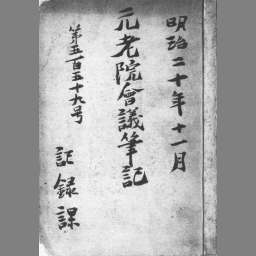 明治二十年十一月
元老院會議筆記
第五百五十九号
記録課